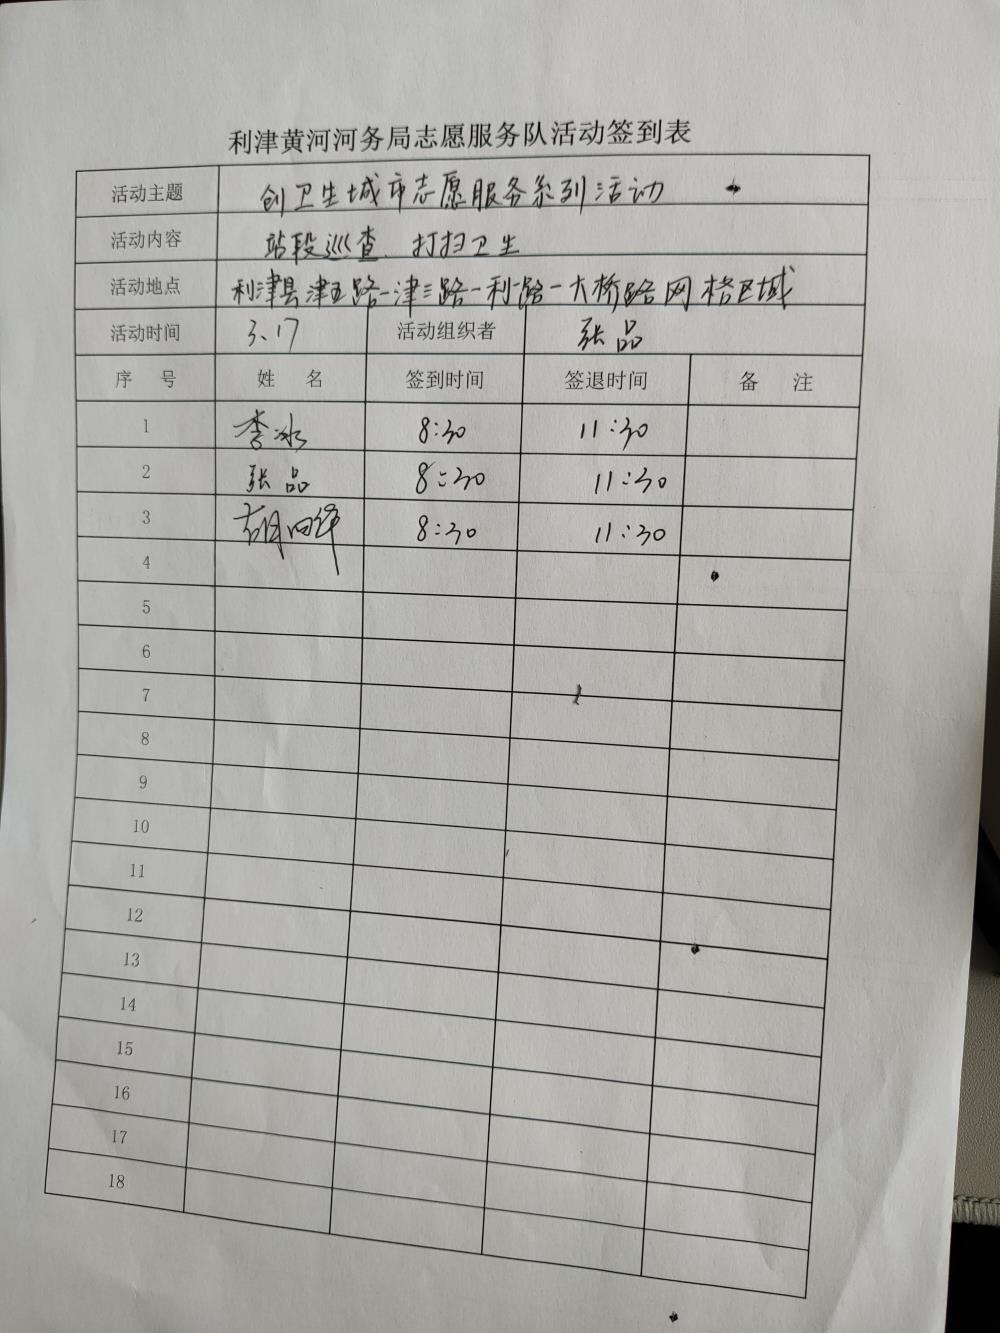 利津黄河河务局志愿服务队活动签到表
活动主题 创卫生城市志愿服务系列活动
活动内容 站段巡查、打扫卫生
活动地点 利津县津五路-津三路-利一路-大桥路网格区域
活动时间 3.17 活动组织者 张品
序 号 姓 名 签到时间 签退时间 备 注
1 李冰 8:30 11:30
2 张品 8:30 11:30
3 胡 8:30 11:30
4
5
6
7
8
9
10
11
12
13
14
15
16
17
18